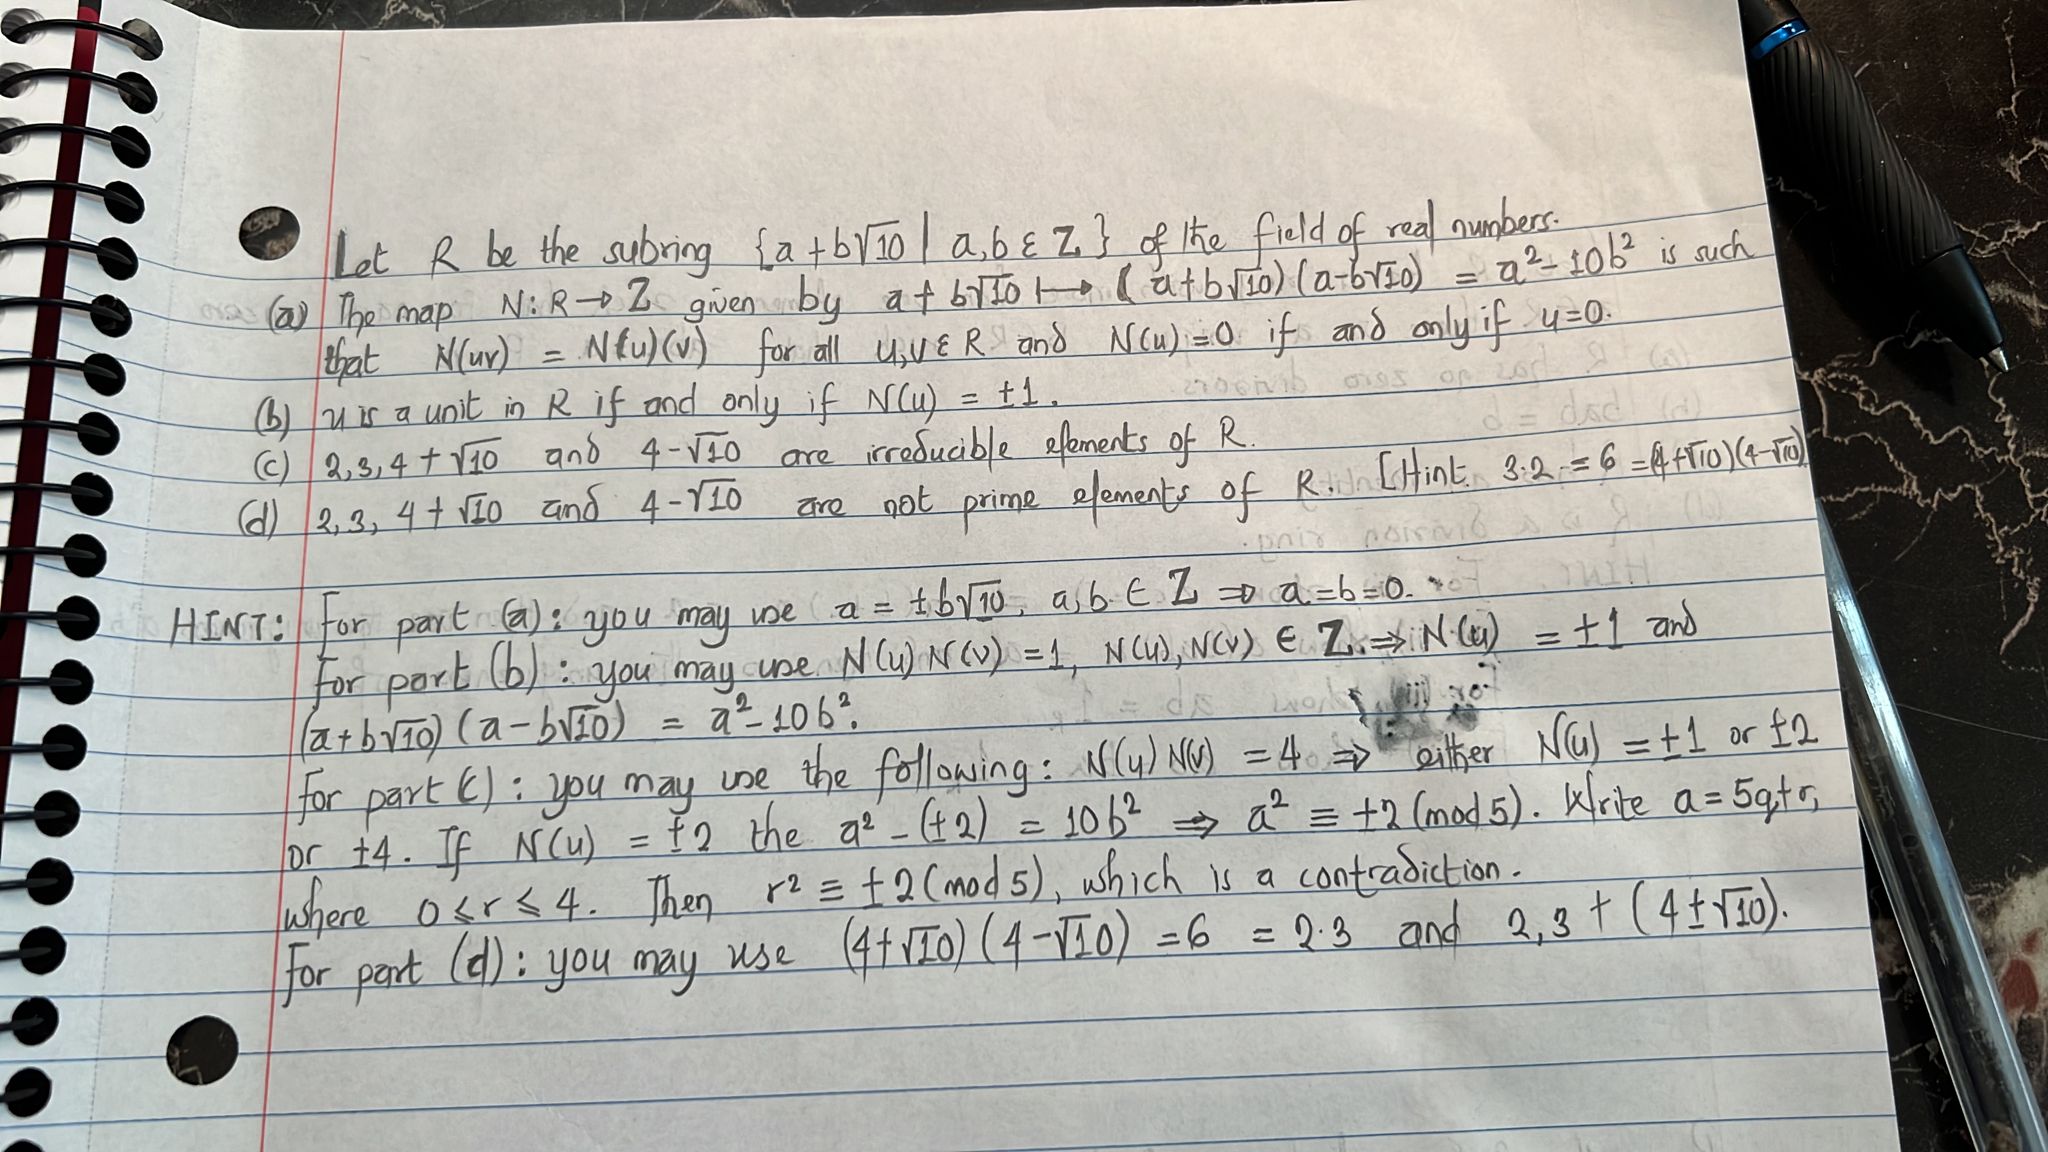 Let R be the subring {a + b√10 | a, b ε Z} of the field of real numbers.
(a) The map N: R → Z given by a + b√10 ↦ (a+b√10)(a-b√10) = a² - 10b² is such
that N(uv) = N(u)(v) for all u,v ε R and N(u) = 0 if and only if u=0.
(b) u is a unit in R if and only if N(u) = ±1.
(c) 2,3,4 + √10 and 4-√10 are irreducible elements of R.
(d) 2,3, 4+ √10 and 4-√10 are not prime elements of R. [Hint. 3·2 = 6 = (4+√10)(4-√10)]
HINT: For part (a): you may use a = ±b√10, a,b ∈ Z ⇒ a=b=0.
For part (b): you may use N(u) N(v) = 1, N(u), N(v) ∈ Z. ⇒ N(u) = ±1 and
(a+b√10)(a-b√10) = a² - 10b².
For part (c): you may use the following: N(u) N(v) = 4 ⇒ either N(u) = ±1 or ±2
or ±4. If N(u) = ±2 the a² - (±2) = 10b² ⇒ a² ≡ ±2 (mod 5). Write a = 5q+r,
where 0 ≤ r ≤ 4. Then r² ≡ ±2 (mod 5), which is a contradiction.
For part (d): you may use (4+√10)(4-√10) = 6 = 2·3 and 2,3 ∤ (4±√10).